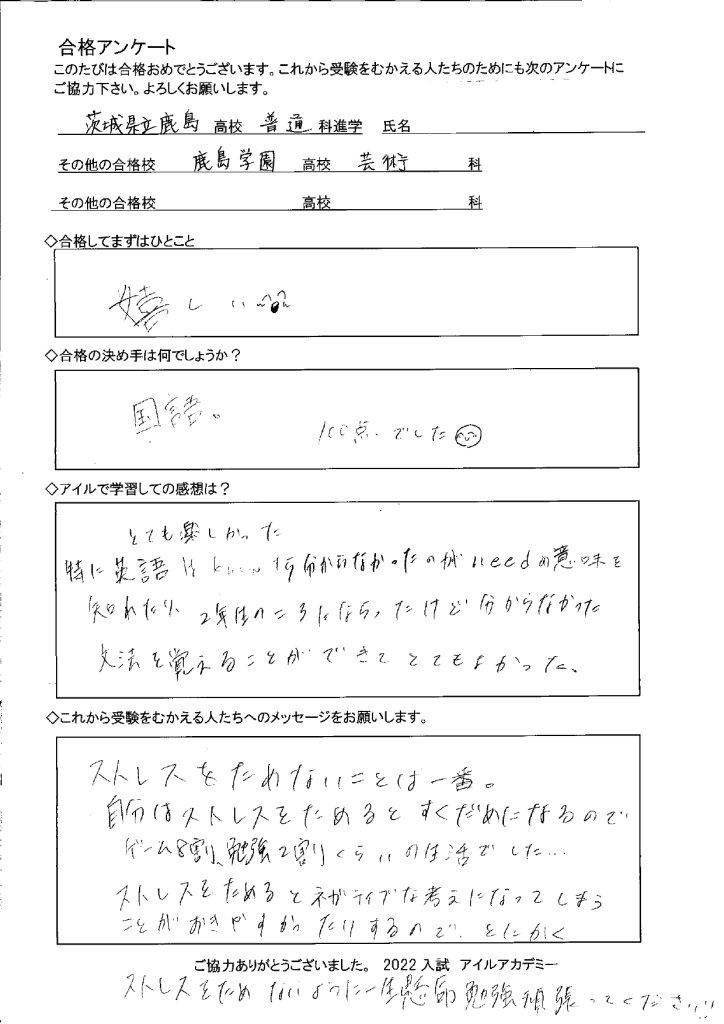 合格アンケート
このたびは合格おめでとうございます。これから受験をむかえる人たちのためにも次のアンケートに
ご協力下さい。よろしくお願いします。
茨城県立鹿島 高校 普通 科進学 氏名
その他の合格校 鹿島学園 高校 芸術 科
その他の合格校 高校 科
◇合格してまずはひとこと
嬉しい
◇合格の決め手は何でしょうか？
国語。
100点でした
◇アイルで学習しての感想は？
とても楽しかった
特に英語は know すら分からなかったのがneedの意味を
知れたり、2年生のころにならったけど分からなかった
文法を覚えることができてとてもよかった、
◇これから受験をむかえる人たちへのメッセージをお願いします。
ストレスをためないことは一番。
自分はストレスをためるとすぐだめになるので
ゲーム8割、勉強2割くらいの生活でした…
ストレスをためるとネガティブな考えになってしまう
ことがおきやすかったりするので、とにかく
ご協力ありがとうございました。 2022入試 アイルアカデミー
ストレスをためないように一生懸命勉強頑張ってください!!